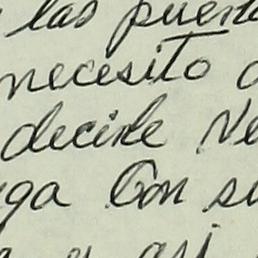 las puert
necesito
decirle Ne
ga Con su
y asi